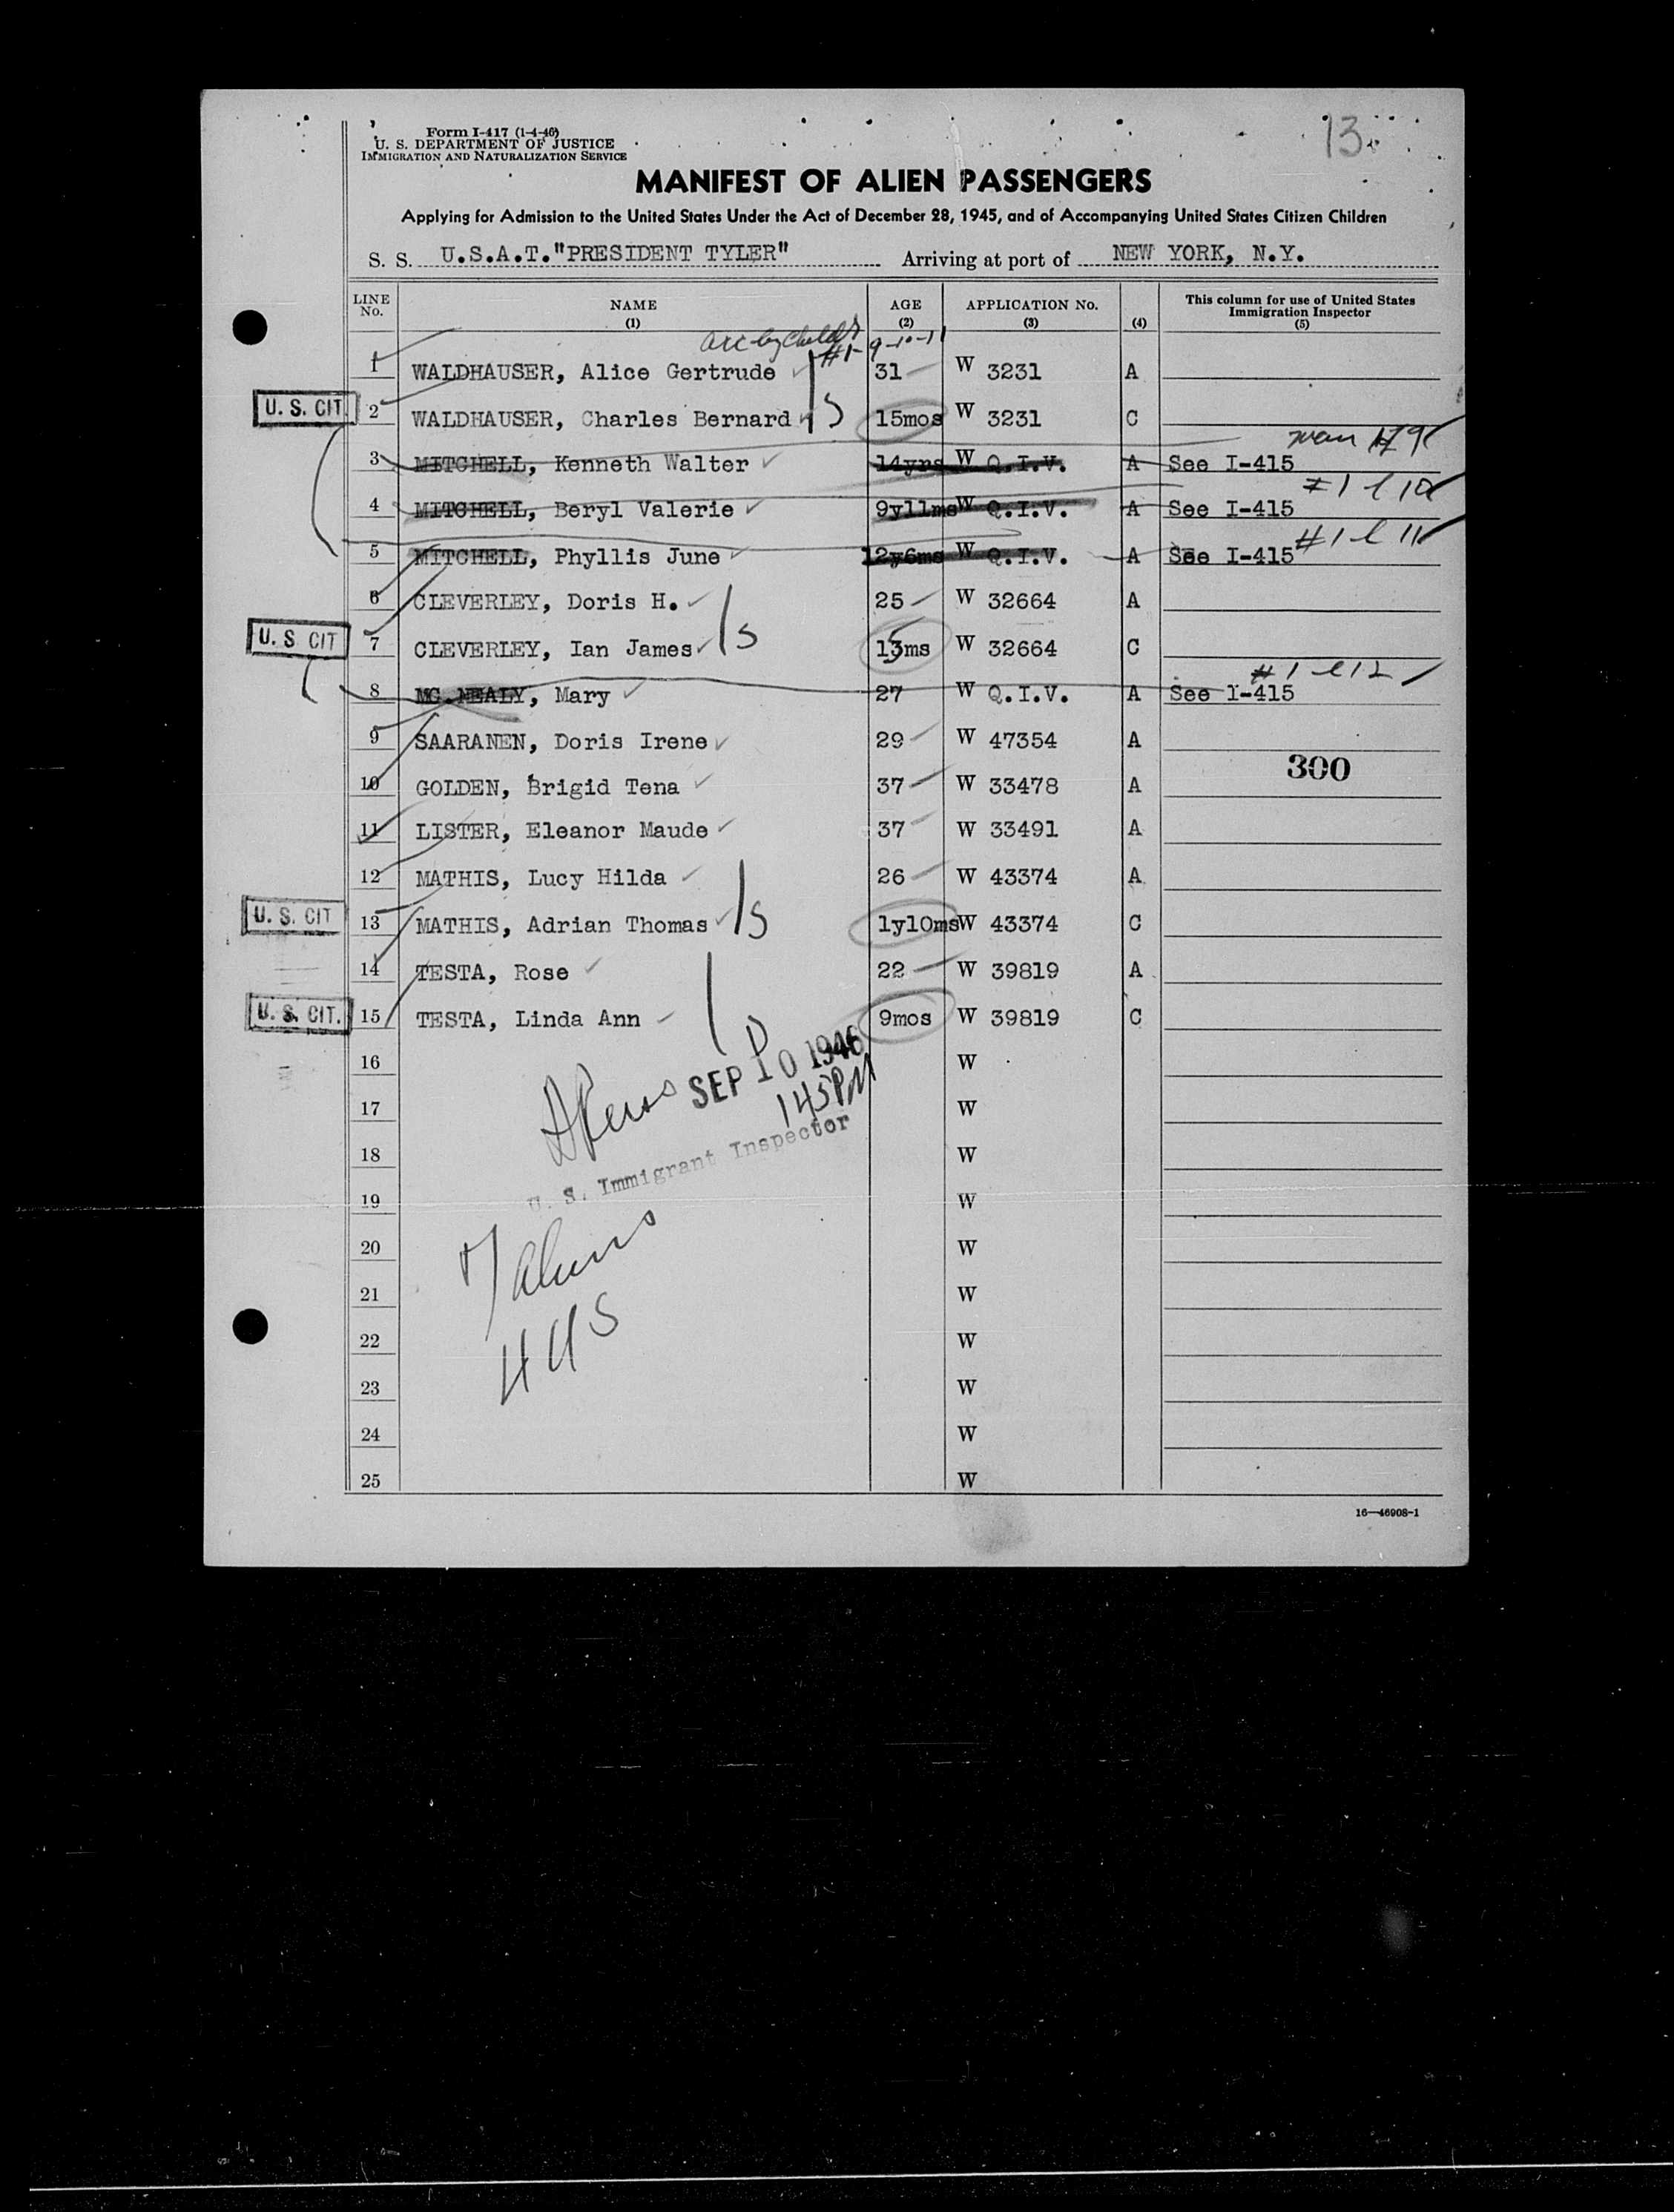 13
Form I-417 (1-4-46)
U. S. DEPARTMENT OF JUSTICE
IMMIGRATION AND NATURALIZATION SERVICE
MANIFEST OF ALIEN PASSENGERS
Applying for Admission to the United States Under the Act of December 28, 1945, and of Accompanying United States Citizen Children
S. S. U.S.A.T."PRESIDENT TYLER" Arriving at port of NEW YORK, N.Y.
LINE No. NAME (1) AGE (2) APPLICATION No. (3) (4) This column for use of United States Immigration Inspector (5)
#1-9-10-11
1 WALDHAUSER, Alice Gertrude 31 W 3231 A
U. S. CIT. 2 WALDHAUSER, Charles Bernard 15mos W 3231 C
3 MITCHELL, Kenneth Walter 14yrs W Q.I.V. A See I-415
#1 l 10
4 MITCHELL, Beryl Valerie 9y11ms W Q.I.V. A See I-415
#1 l 11
5 MITCHELL, Phyllis June 12y6ms W Q.I.V. A See I-415
6 CLEVERLEY, Doris H. 25 W 32664 A
U. S. CIT 7 CLEVERLEY, Ian James 15ms W 32664 C
#1 l 12
8 MC NEALY, Mary 27 W Q.I.V. A See I-415
9 SAARANEN, Doris Irene 29 W 47354 A
300
10 GOLDEN, Brigid Tena 37 W 33478 A
11 LISTER, Eleanor Maude 37 W 33491 A
12 MATHIS, Lucy Hilda 26 W 43374 A
U. S. CIT 13 MATHIS, Adrian Thomas 1y10ms W 43374 C
14 TESTA, Rose 22 W 39819 A
U. S. CIT. 15 TESTA, Linda Ann 9mos W 39819 C
SEP 10 1946
16 W
145PM
17 W
U. S. Immigrant Inspector
18 W
19 W
20 W
7 aliens
21 W
4 US
22 W
23 W
24 W
25 W
16—46908-1